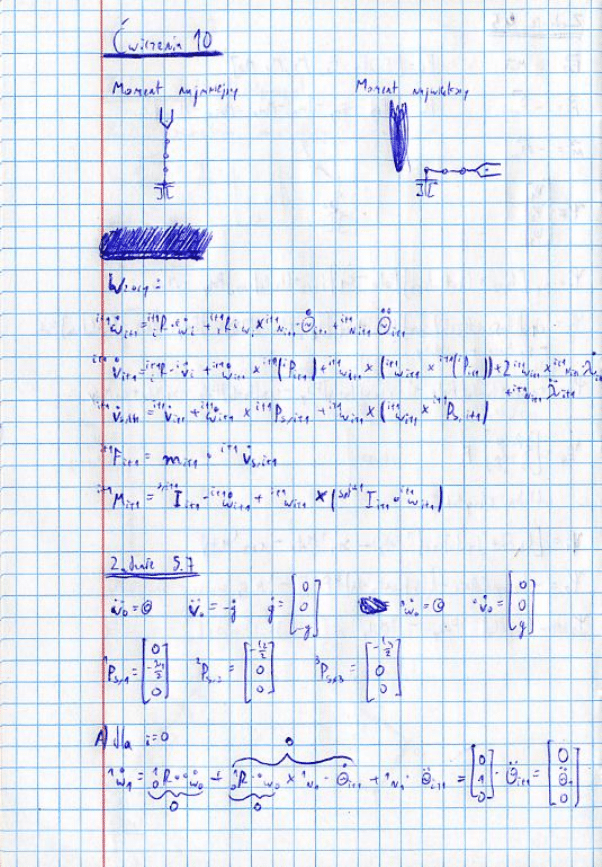 Ćwiczenia 10
Moment najmniejszy Moment największy
Wzory:
^{i+1}ω̇_{i+1} = ^{i+1}_iR·^iω̇_i + ^{i+1}_iR ^iω_i × ^{i+1}N_{i+1}·Θ̇_{i+1} + ^{i+1}N_{i+1} Θ̈_{i+1}
^{i+1}v̇_{i+1} = ^{i+1}_iR·^iv̇_i + ^{i+1}ω̇_{i+1} × ^{i+1}(^iP_{i+1}) + ^{i+1}ω_{i+1} × (^{i+1}ω_{i+1} × ^{i+1}(^iP_{i+1})) + 2 ^{i+1}ω_{i+1} × ^{i+1}N_{i+1}·λ̇_{i+1}
+ ^{i+1}N_{i+1} λ̈_{i+1}
^{i+1}v̇_{s,i+1} = ^{i+1}v̇_{i+1} + ^{i+1}ω̇_{i+1} × ^{i+1}P_{s,i+1} + ^{i+1}ω_{i+1} × (^{i+1}ω_{i+1} × ^{i+1}P_{s,i+1})
^{i+1}F_{i+1} = m_{i+1} · ^{i+1}v̇_{s,i+1}
^{i+1}M_{i+1} = ^{s,i+1}I_{i+1}·^{i+1}ω̇_{i+1} + ^{i+1}ω_{i+1} × (^{s,i+1}I_{i+1}·^{i+1}ω_{i+1})
Zadanie 5.7
= 0 = -g = [0 0 -g] = 0 = [0 0 g]
^1P_{s,1} = [0 0] ^2P_{s,2} = [0 0] ^3P_{s,3} = [0 0]
A) dla i=0
0
^1ω̇_1 = ^1_0R·^0ω̇_0 + ^1_0R·^0ω_0 × ^1N_1·Θ̇_{i+1} + ^1N_1·Θ̈_{i+1} = [0 1 0]·Θ̈_{i+1} = [0 Θ̈_1 0]
0 0